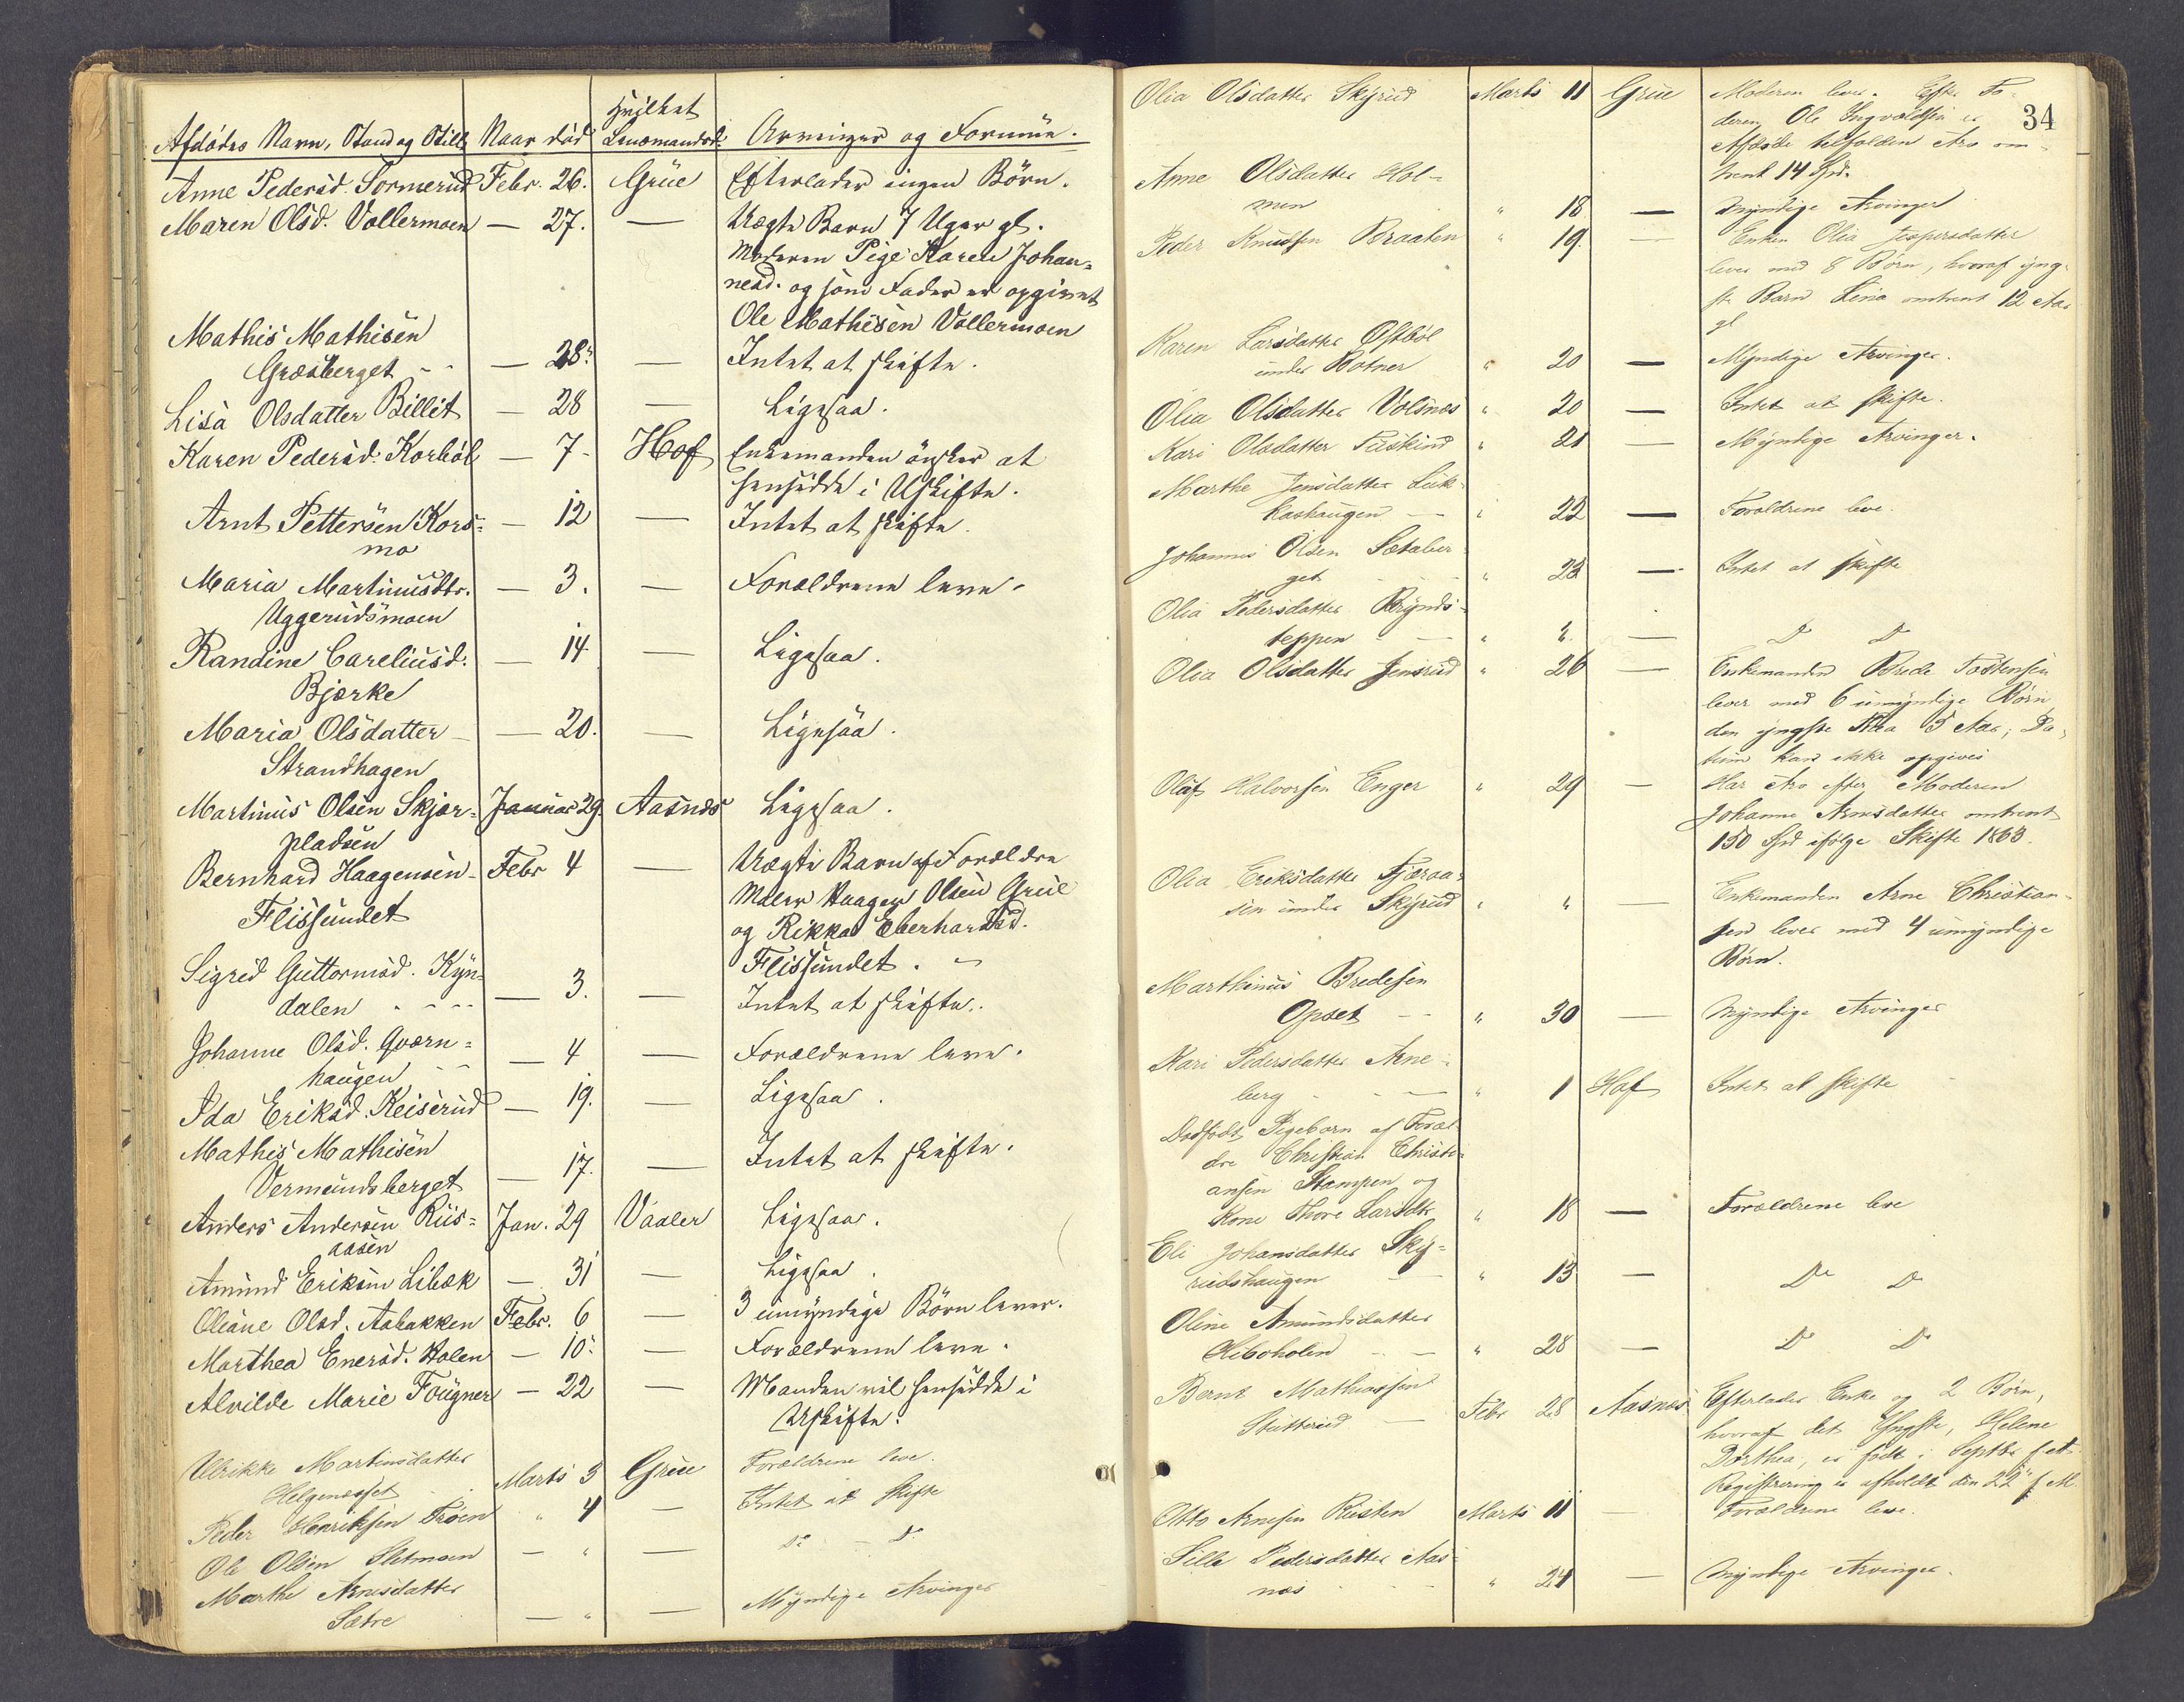 Hvilket
Afdødes Navn, Stand og Still. Naar død Lensmandsd. Arvinger og Formue.
Anne Pedersd. Sormerud Febr. 26. Grue Efterlader ingen Børn.
Maren Olsd. Vollermoen — 27. — Uægte Barn 7 Uger gl.
Moderen Pige Karen Johan=
nesd. og som Fader er opgivet
Ole Mathisen Vollermoen
Mathis Mathisen
Græsberget — 28. — Intet at skifte.
Lisa Olsdatter Billit — 28 — Ligesaa.
Karen Pedersd. Korbøl — 7 - Hof Enkemanden ønsker at
hensidde i Uskifte.
Arnt Pettersen Kors= — 12 — Intet at skifte.
mo
Maria Martinusdtr. — 3. — Forældrene leve.
Uggerudsmoen
Randine Careliusd. — 14. — Ligesaa.
Bjerke
Maria Olsdatter — 20. — Ligesaa.
Strandhagen
Martinus Olsen Skjær= Januar 29. Aasnes Ligesaa.
pladsen
Bernhard Haagensen Febr 4 — Uægte Barn af Forældre
Flissundet Maler Haagen Olsen Grue
og Rikka Eberhardsd.
Flissundet.
Sigrid Guttormsd. Kyn=
dalen — 3. — Intet at skifte.
Johanne Olsd. Qværn= — 4 — Forældrene leve.
haugen
Ida Eriksd. Keiserud — 19. — Ligesaa.
Mathis Mathisen
Vermundsberget — 17. — Intet at skifte.
Anders Andersen Riis= Jan. 29 Vaaler Ligesaa.
aasen
Amund Eriksen Libæk — 31 — Ligesaa.
Oleane Olsd. Aabakken Febr. 6 — 3 umyndige Børn lever.
Marthea Enersd. Holen — 10. — Forældrene leve.
Alvilde Marie Fougner — 22 — Manden vil hensidde i
Uskifte.
Ulrikke Martinsdatter
Helgenæsset Marts 3 Grue Forældrene leve.
Peder Henriksen Trøen " 4 — Intet at skifte
Ole Olsen Sletmoen — " — Do — Do
Marthe Arnesdatter
Sætre — " — Myndige Arvinger
34
Olia Olsdatter Skyrud Marts 11 Grue Moderen lever. Efter Fa-
deren Ole Ingvoldsen er
Afdøde tilfalden Arv om-
trent 14 Spd.
Anne Olsdatter Hol=
men " 18 — Myndige Arvinger
Peder Knudsen Braaten " 19 — Enken Olia Jespersdatter
lever med 8 Børn, hvoraf yng-
ste Barn Lina omtrent 12 Aar
gl
Karen Larsdatter Østbøl
under Rotner " 20 — Myndige Arvinger.
Olia Olsdatter Volsnes " 20 — Intet at skifte.
Kari Olsdatter Tuskind " 21 — Myndige Arvinger.
Marthe Jensdatter Luk-
kashaugen — " 22 — Forældrene leve.
Johannes Olsen Sætaber-
get " 23 — Intet at skifte
Olia Pedersdatter Brynds-
teppen — " " — Do Do
Olia Olsdatter Jensrud " 26 — Enkemanden Brede Tostensen
lever med 6 umyndige Børn
den yngste 5 Aar; Da-
tum kan ikke opgives
Olaf Halvorsen Enger " 29 — Har Arv efter Moderen
Johanne Arnesdatter omtrent
150 Spd ifølge Skifte 1863.
Olea Eriksdatter Fjæraa-
sen under Skyrud " " — Enkemanden Arne Christian-
sen lever med 4 umyndige
Børn.
Marthinus Bredesen
Opset — " 30 — Myndige Arvinger
Kari Pedersdatter Arne-
berg — " 1 Hof Intet at skifte
Dødfødt Pigebarn af Foræl-
dre Christian Christi-
ansen Stampen og
Kone Thore Larsdtr " 18 — Forældrene leve
Eli Johansdatter Sky=
rudshaugen — " 13 — Do Do
Oline Amundsdatter
Heboholen — " 28 — Do Do
Bernt Mathiassen
Stutterud — Febr 28 Aasnes Efterlader Enke og 2 Børn,
hvoraf det Yngste, Helene
Dorthea, er født i Septbr f. A.
Registrering er afholdt den 22de f. M
Otto Arnesen Risten Marts 11 — Forældrene leve.
Sille Pedersdatter Aas-
næs " 24 — Myndige Arvinger.